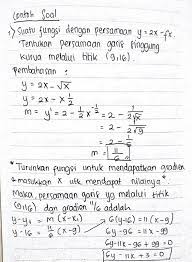 Contoh Soal
1) Suatu fungsi dengan persamaan y = 2x - √x.
Tentukan persamaan garis singgung
kurva melalui titik (9,16).
Pembahasan :
y = 2x - √x
y = 2x - x^½
m = y' = 2 - ½ x^-½ = 2 - 1/(2√x)
= 2 - 1/(2√9)
= 2 - 1/6
m = 11/6
* Turunkan fungsi untuk mendapatkan gradien
& masukkan x utk mendapat nilainya.
Maka, persamaan garis yg melalui titik
(9,16) dan gradien 11/6 adalah
y - y₁ = m (x - x₁)
y - 16 = 11/6 (x - 9)
6(y - 16) = 11(x - 9)
6y - 96 = 11x - 99
6y - 11x - 96 + 99 = 0
6y - 11x + 3 = 0